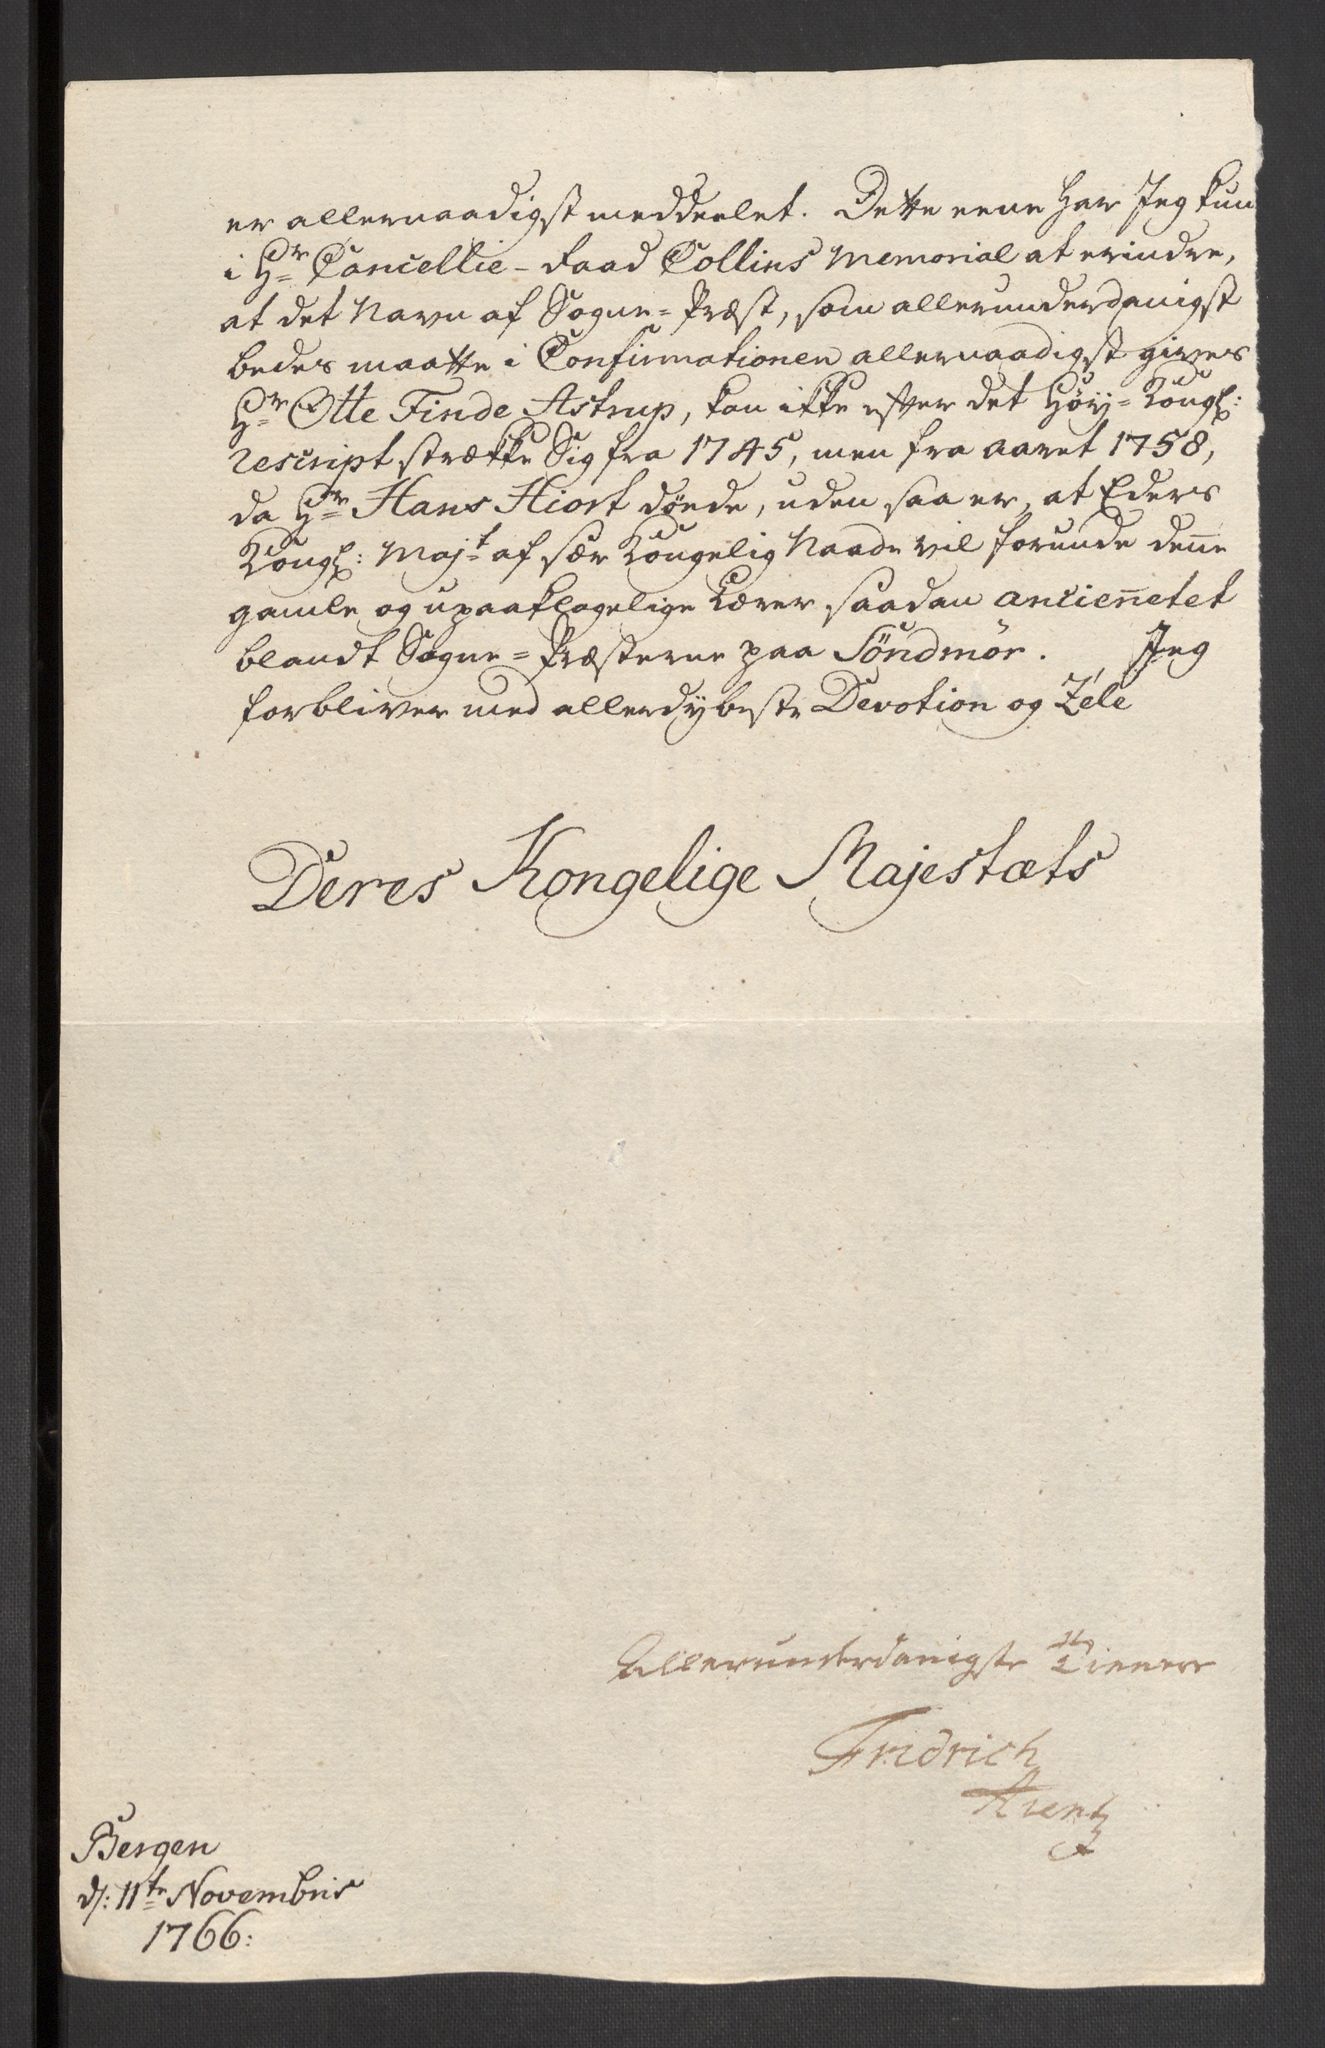 er allernaadigst meddeelet. Dette eene har Jeg kun
i Hr Cancellie-Raad Collins Memorial at erindre,
at det Navn af Sogne=Præst, som allerunderdanigst
bedes maatte i Confirmationen allernaadigst gives
Hr Otte Finde Astrup, kan ikke efter det Høy=Kongl:
rescript strække Sig fra 1745, men fra aaret 1758,
da Hr Hans Hiort døede, uden saa er, at Eders
Kongl: Majt af sær Kongelig Naade vil forunde denne
gamle og upaaklagelige Lærer saadan anciennetet
blandt Sogne=Præsterne paa Söndmör. Jeg
forbliver med allerdybeste Devotion og Zéle
Deres Kongelige Majestæts
Allerunderdanigste Tienere
Fridrich
Arentz
Bergen
d: 11te Novembris
1766: